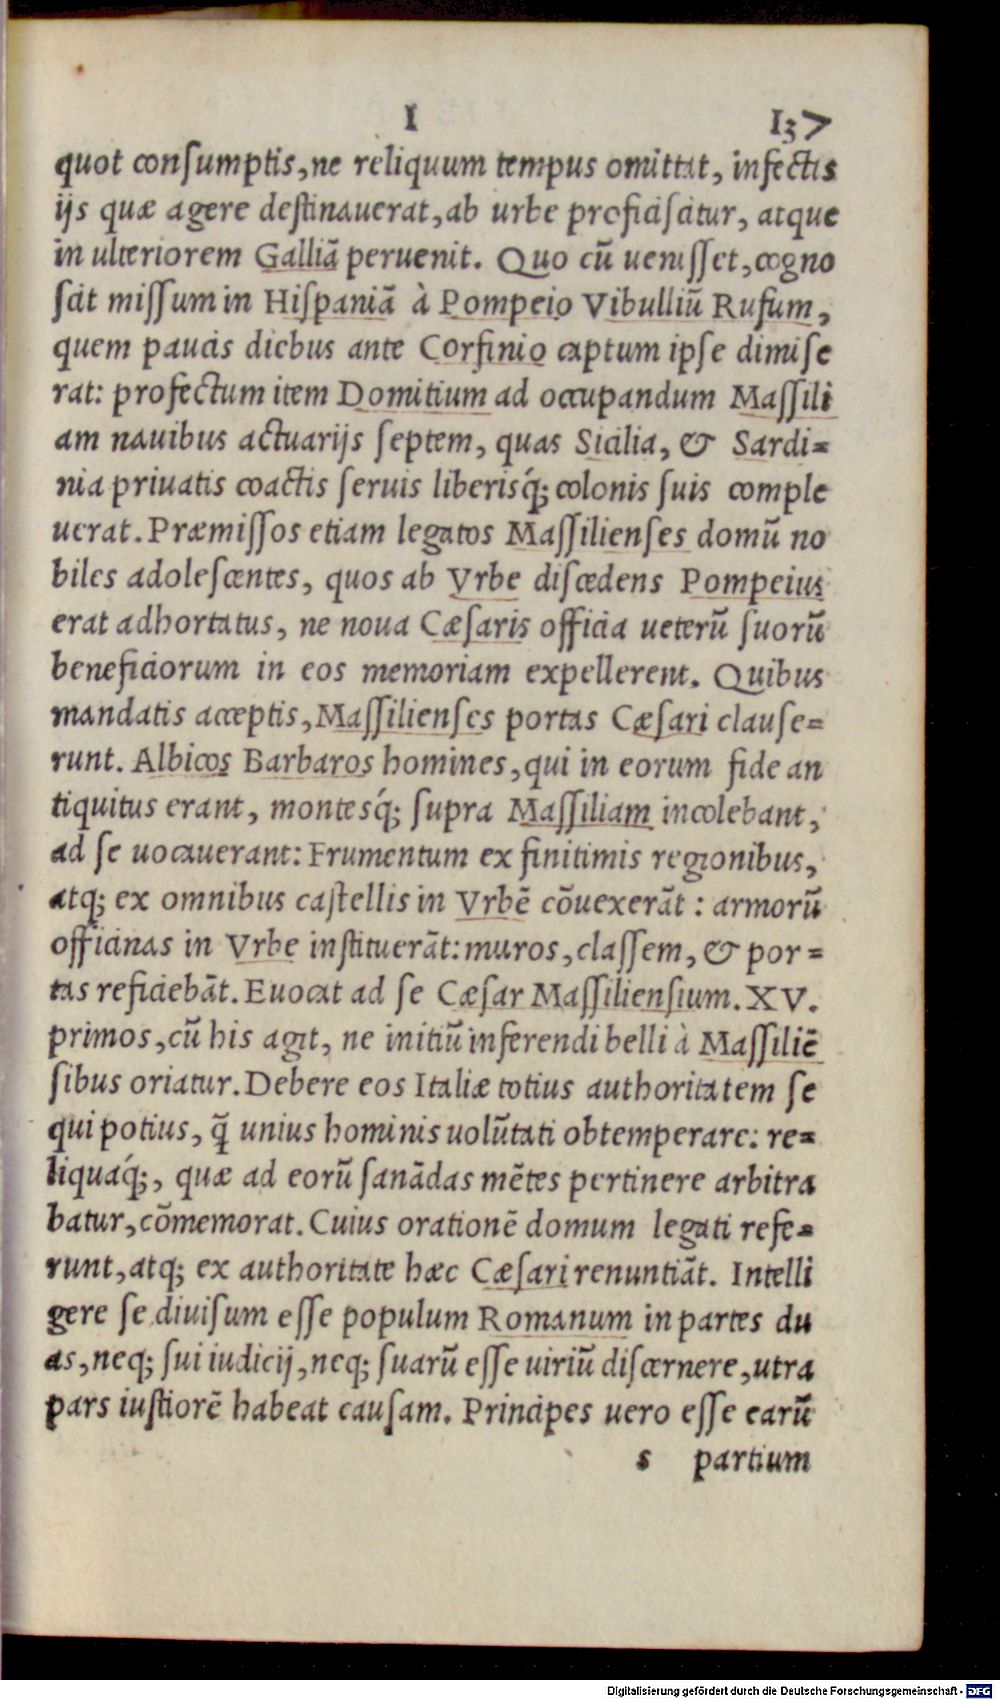 I 137
quot consumptis, ne reliquum tempus omittat, infectis
ijs quæ agere destinauerat, ab urbe proficiscitur, atque
in ulteriorem Galliā peruenit. Quo cū uenisset, cogno
scit missum in Hispaniā à Pompeio Vibulliū Rufum,
quem paucis diebus ante Corfinio captum ipse dimise
rat: profectum item Domitium ad occupandum Massili
am nauibus actuarijs septem, quas Sicilia, & Sardi=
nia priuatis coactis seruis liberisq́; colonis suis comple
uerat. Præmissos etiam legatos Massilienses domū no
biles adolescentes, quos ab Vrbe discedens Pompeius
erat adhortatus, ne noua Cæsaris officia ueterū suorū
beneficiorum in eos memoriam expellerent. Quibus
mandatis acceptis, Massilienses portas Cæsari clause=
runt. Albicos Barbaros homines, qui in eorum fide an
tiquitus erant, montesq́; supra Massiliam incolebant,
ad se uocauerant: Frumentum ex finitimis regionibus,
atq; ex omnibus castellis in Vrbē cōuexerāt: armorū
officinas in Vrbe instituerāt: muros, classem, & por=
tas reficiebāt. Euocat ad se Cæsar Massiliensium. XV.
primos, cū his agit, ne initiū inferendi belli à Massiliē
sibus oriatur. Debere eos Italiæ totius authoritatem se
qui potius, q̄ unius hominis uolūtati obtemperare: re=
liquaq́;, quæ ad eorū sanādas mētes pertinere arbitra
batur, cōmemorat. Cuius orationē domum legati refe=
runt, atq; ex authoritate hæc Cæsari renuntiāt. Intelli
gere se diuisum esse populum Romanum in partes du
as, neq; sui iudicij, neq; suarū esse uiriū discernere, utra
pars iustiorē habeat causam. Principes uero esse earū
s partium
Digitalisierung gefördert durch die Deutsche Forschungsgemeinschaft - DFG